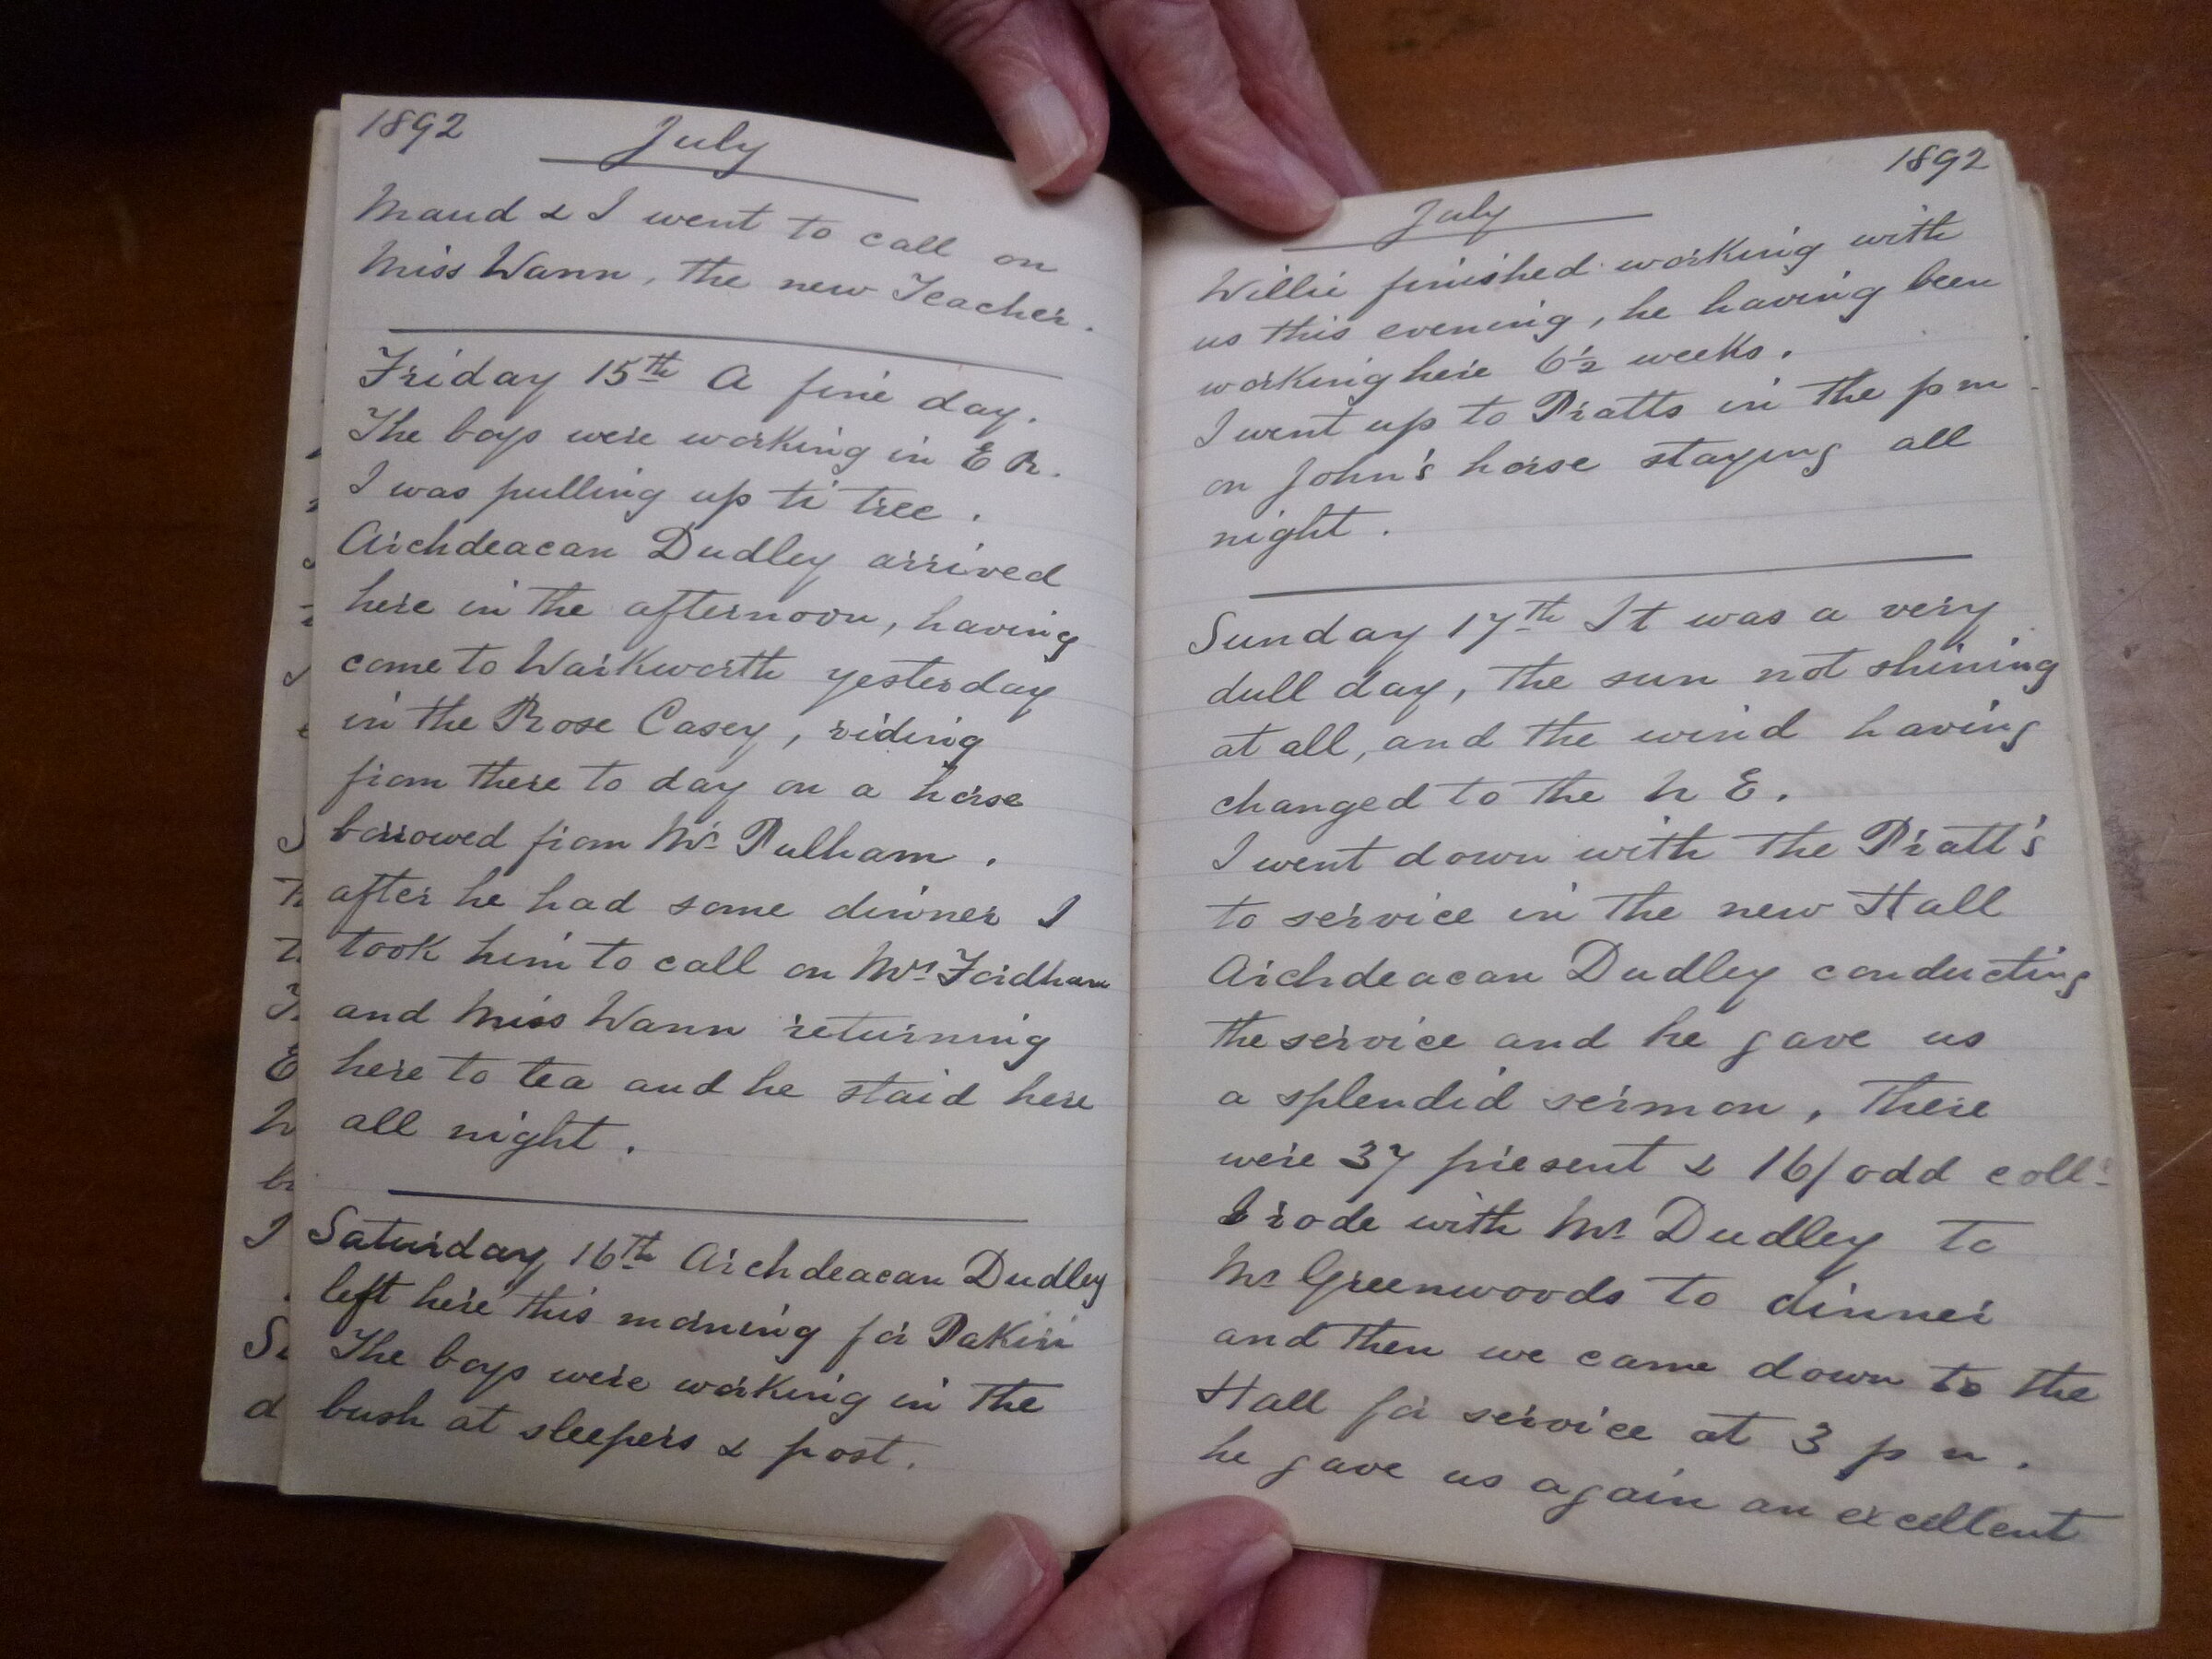 1892 July
Maud & I went to call on
Miss Wann, the new Teacher.
Friday 15th A fine day.
The boys were working in E R.
I was pulling up ti tree.
Archdeacon Dudley arrived
here in the afternoon, having
come to Warkworth yesterday
in the Rose Casey, riding
from there to day on a horse
borrowed from Mr Pulham.
after he had some dinner I
took him to call on Mrs Fordham
and Miss Wann returning
here to tea and he staid here
all night.
Saturday 16th Archdeacon Dudley
left here this morning for Pakiri
The boys were working in the
bush at sleepers & post.
1892
July
Willie finished working with
us this evening, he having been
working here 6½ weeks.
I went up to Pratts in the p m
on John's horse staying all
night.
Sunday 17th It was a very
dull day, the sun not shining
at all, and the wind having
changed to the N E.
I went down with the Pratt's
to service in the new Hall
Archdeacon Dudley conducting
the service and he gave us
a splendid sermon, there
were 37 present & 16/ odd coll
I rode with Mr Dudley to
Mr Greenwoods to dinner
and then we came down to the
Hall for service at 3 p m.
he gave us again an excellent